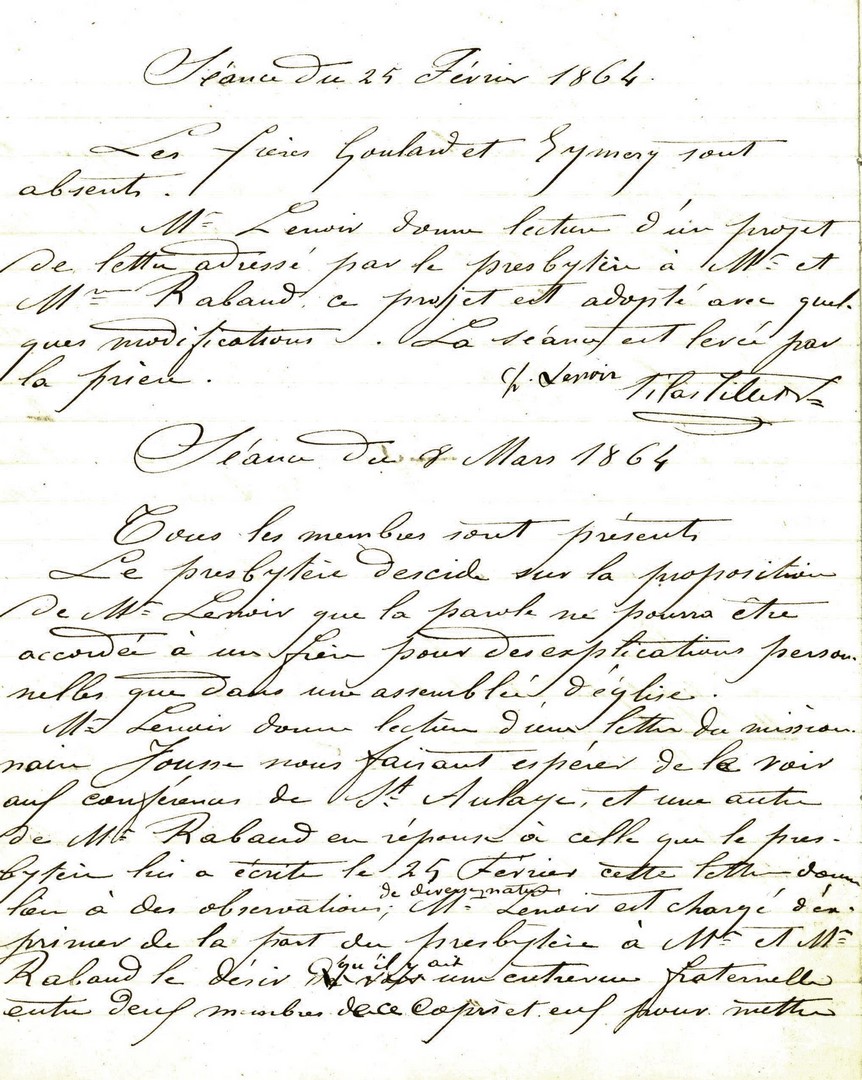 Séance du 25 Février 1864.
Les frères Goulard et Eymery sont
absents.
Mr Lenoir donne lecture d'un projet
de lettre adressé par le presbytère à Mr et
Mme Rabaud. ce projet est adopté avec quel-
ques modifications. La séance est levée par
la prière.
p. Lenoir
Séance du 8 Mars 1864
Tous les membres sont présents
Le presbytère descide sur la proposition
de Mr Lenoir que la parole ne pourra être
accordée à un frère pour des explications person-
nelles que dans une assemblée d'église.
Mr Lenoir donne lecture d'une lettre du mission-
naire Jousse nous faisant espérer de le voir
aux conférences de St Aulaye, et une autre
de Mr Rabaud en réponse à celle que le pres-
bytère lui a écrite le 25 Février cette lettre donne
lieu à des observations de diverse nature; Mr Lenoir est chargé d'ex-
primer de la part du presbytère à Mr et Me
Rabaud le désir qu'il y ait une entrevue fraternelle
entre deux membres de ce corps et eux pour mettre